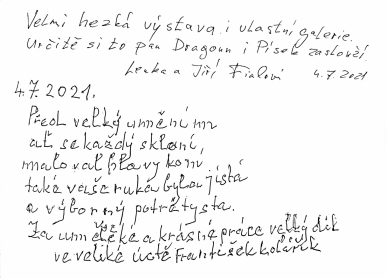 Velmi hezká výstava i vlastní galerie.
Určitě si to pan Dragoun i Písek zaslouží.
Lenka a Jiří Fialovi 4.7.2021
4.7.2021.
Před velkým uměním
ať se každý skloní,
maloval hlavy koní
také vaše ruka byla jistá
a výborný portrétysta.
Za umělecké a krásné práce velký dík
ve veliké úctě František Kolářík